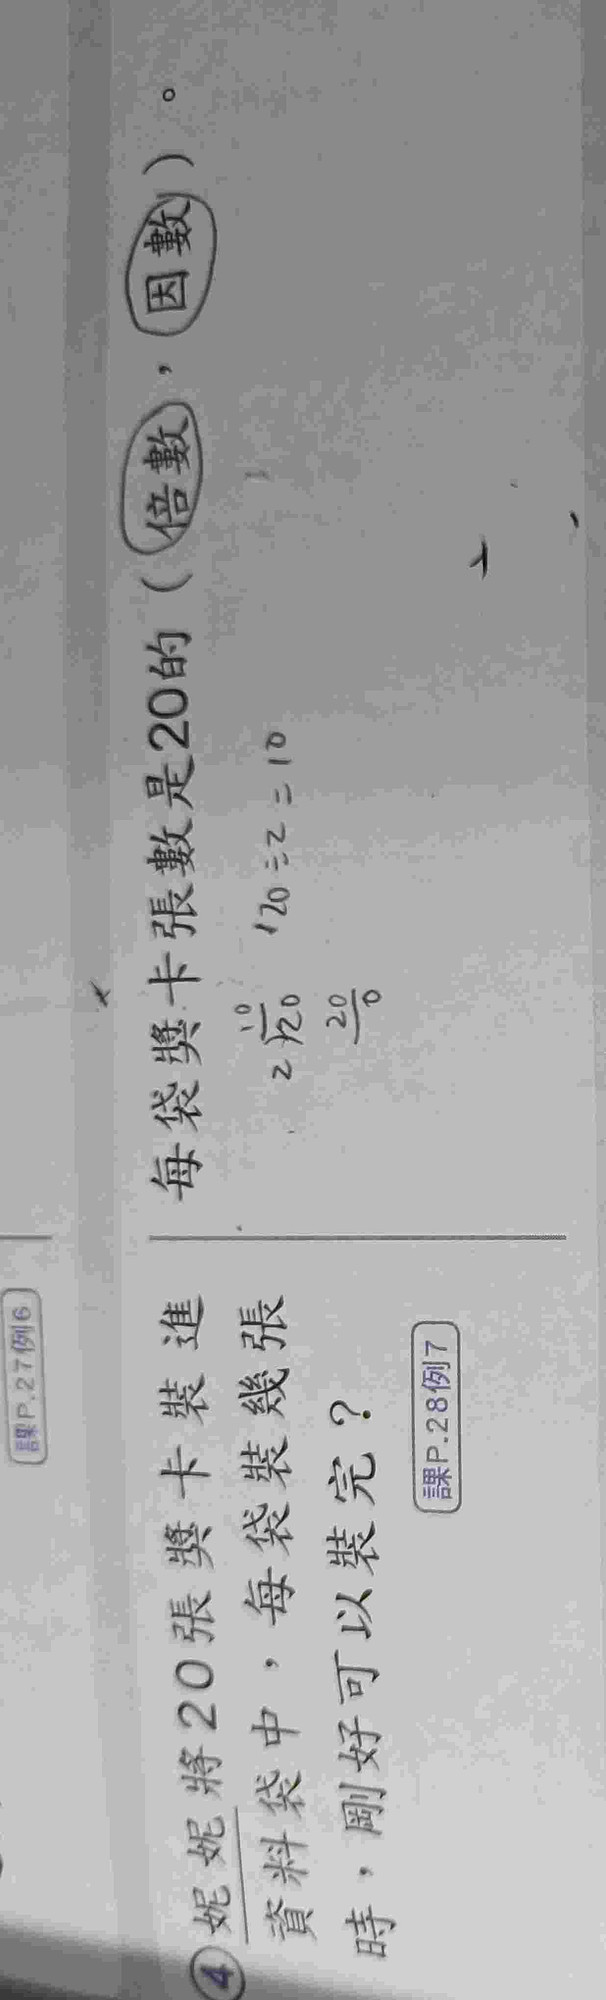 課P.27例6
④妮妮將20張獎卡裝進
資料袋中，每袋裝幾張
時，剛好可以裝完？
課P.28例7
每袋獎卡張數是20的（倍數，因數）。
10
2)20
20
0
20÷2=10